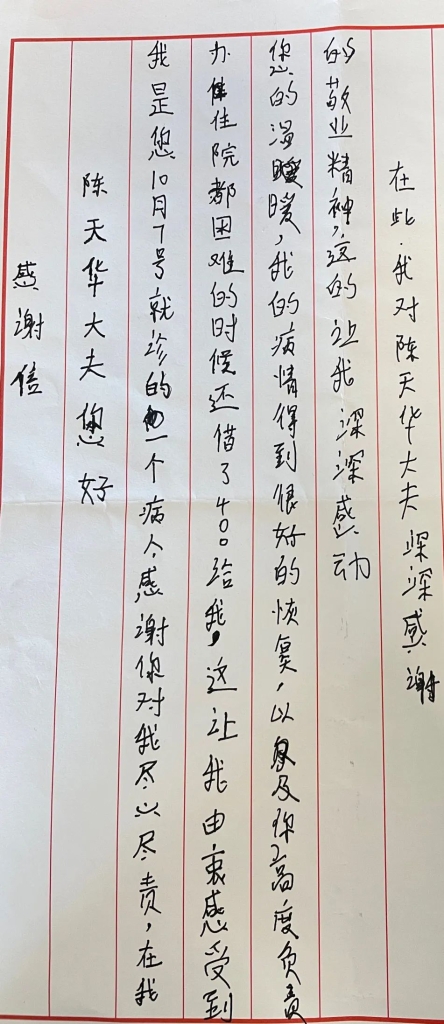 感谢信
陈天华大夫您好
我是您10月7号就诊的一个病人,感谢你对我尽心尽责,在我
办住院都困难的时候还借了400给我,这让我由衷感受到
您的温暖,我的病情得到很好的恢复,以及你高度负责
的敬业精神,这的让我深深感动
在此.我对陈天华大夫深深感谢